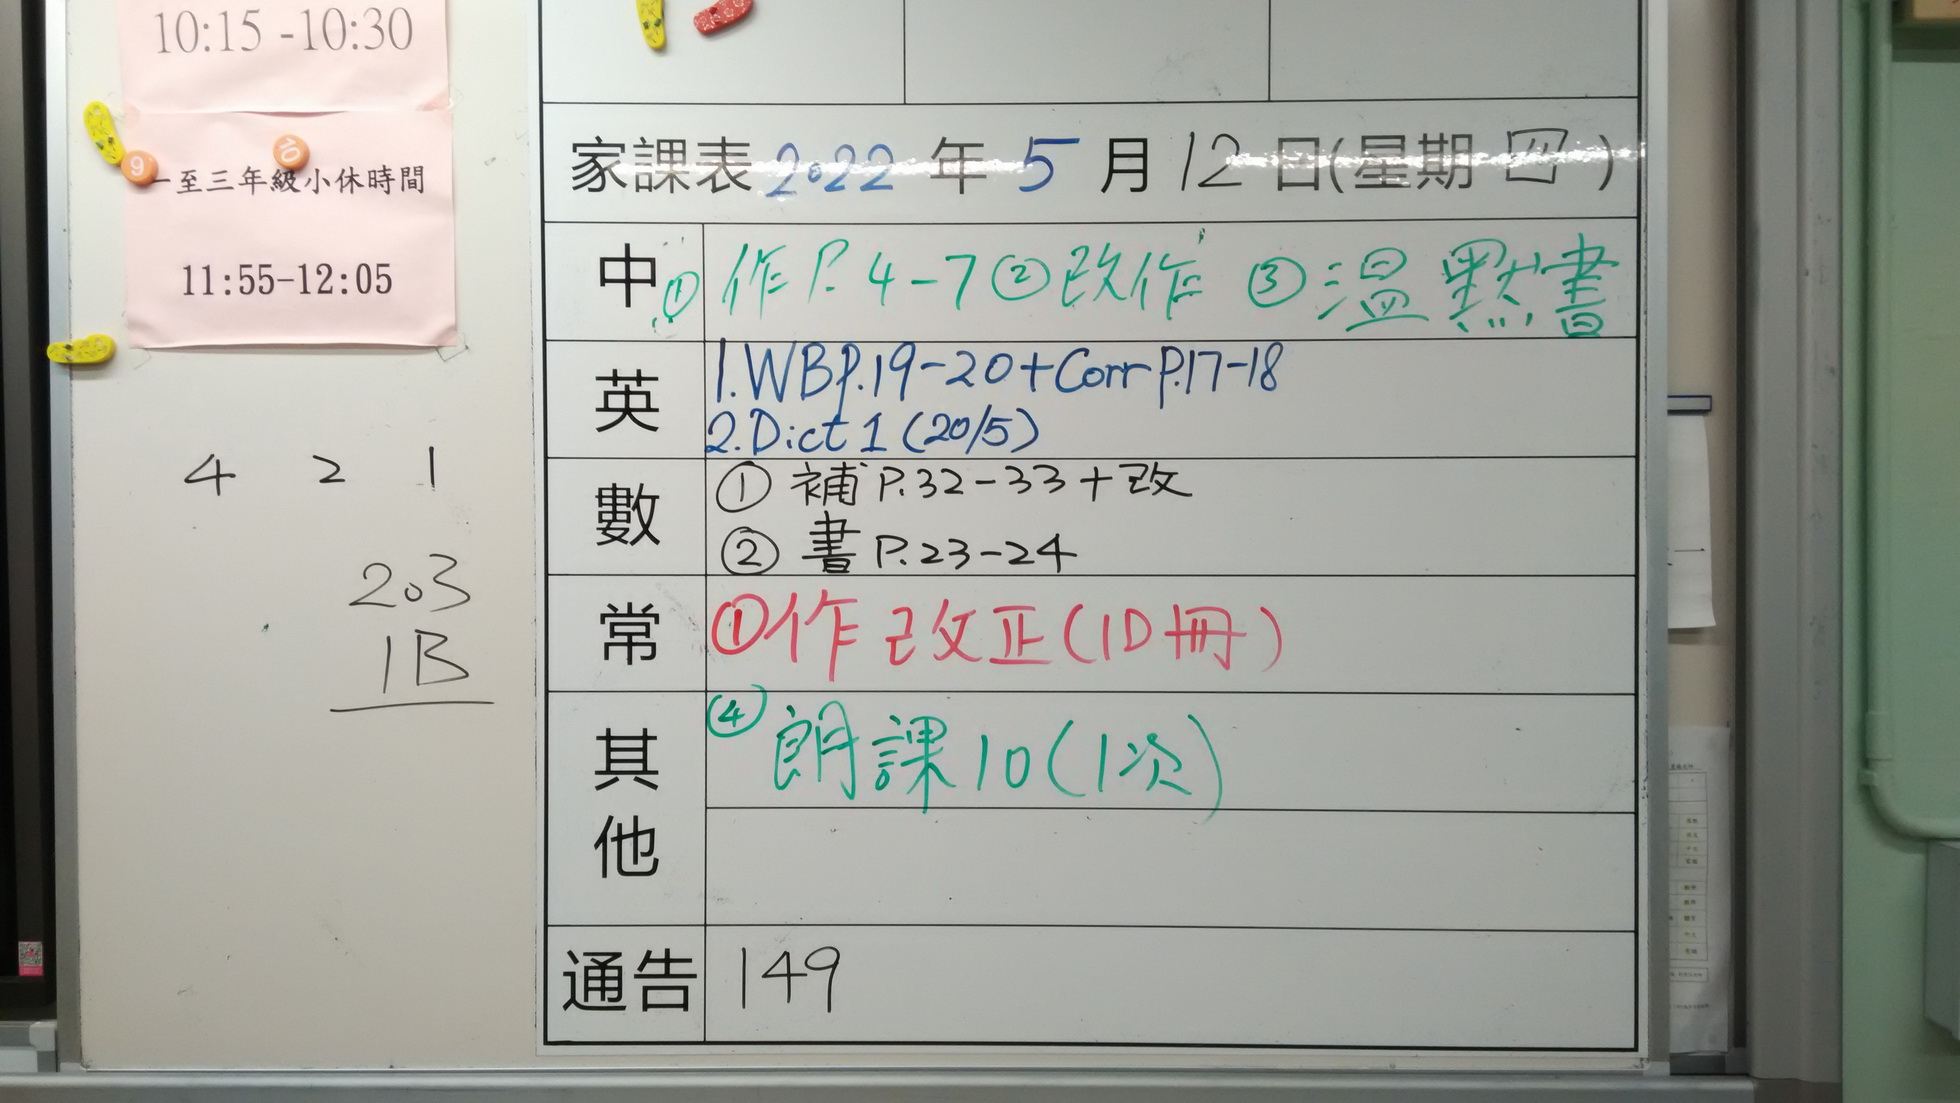 10:15 -10:30
一至三年級小休時間
11:55-12:05
9
10
4 2 1
203
1B
家課表 2022 年 5 月 12 日(星期 四 )
中 ① 作 P. 4-7 ② 改作 ③ 溫默書
英
1. WB p.19-20 + Corr p.17-18
2. Dict 1 (20/5)
數
① 補 P.32-33 + 改
② 書 P.23-24
常 ① 作改正(1D冊)
其他
④ 朗課10(1次)
通告 149